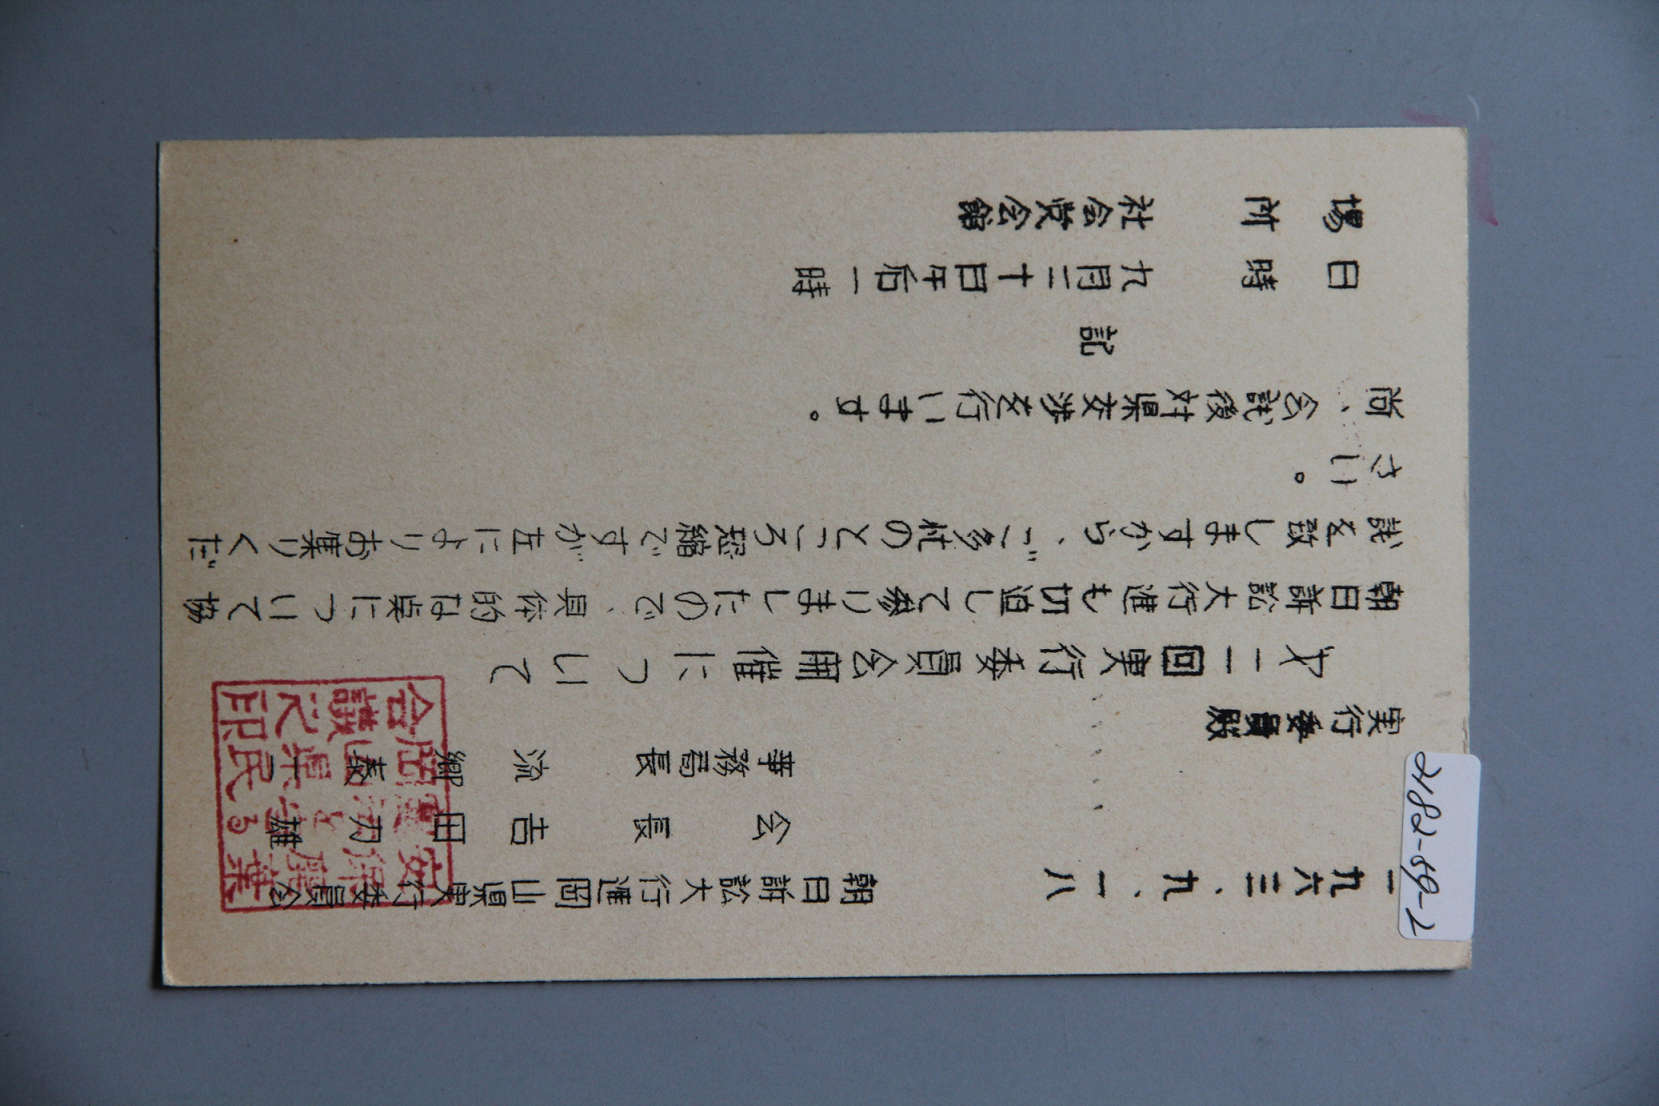 一九六三、九、一八
朝日訴訟大行進岡山県実行委員会
会長 吉田 雄
事務局長 流郷
実行委員殿
才二回実行委員会開催について
朝日訴訟大行進も切迫して参りましたので、具体的な点について協
議を致しますから、ご多忙のところ恐縮ですが左によりお集りくだ
さい。
尚、会議後対県交渉を行います。
記
日時 九月二十日午后一時
場所 社会党会館
岡山県民
会議之印
2182-69-2